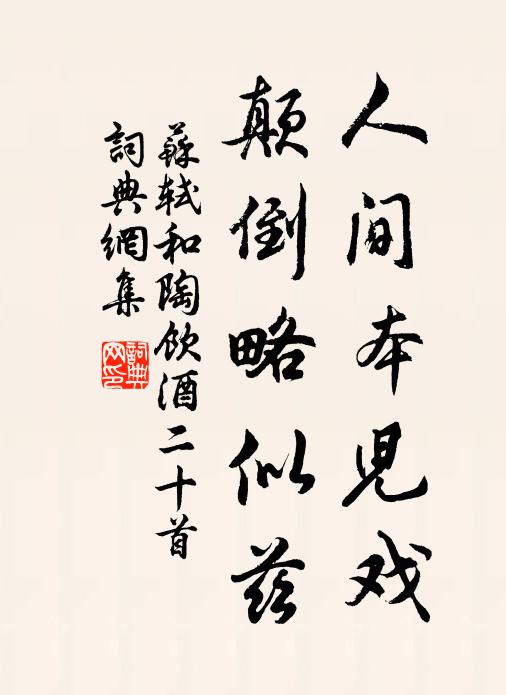 人间本児戏
颠倒略似兹
蘇轼和陶饮酒二十首
詞典網集
詞典网印